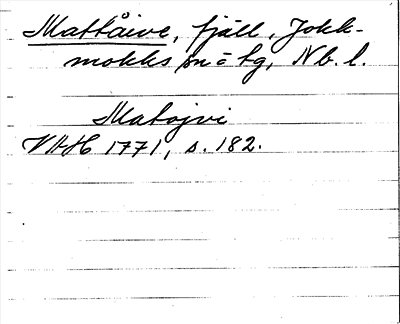 Mattåive, fjäll, Jokk-
mokks sn o tg, Nb. l.
Matojvi
VHH 1771, s. 182.